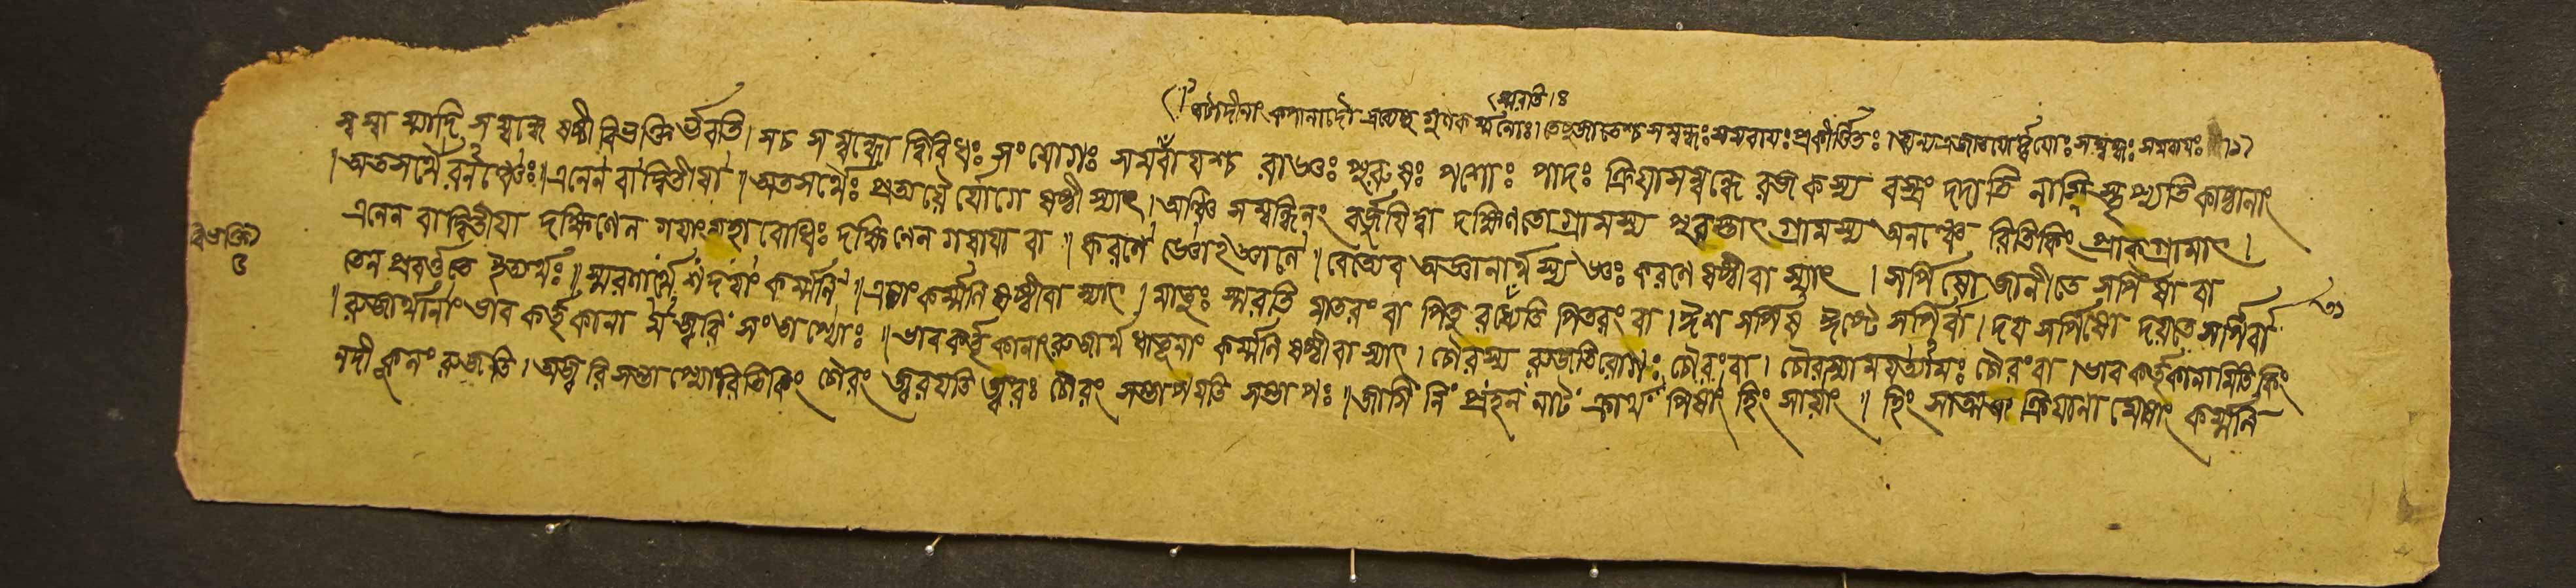 স্মরতি।৪
ঘটাদীনাং কপালাদৌ দ্রব্যেষু গুণকর্ম্মনোঃ। তেষুজাতেশ্চ সম্বন্ধঃ সমবায়ঃ প্রকীর্ত্তিতঃ।
স্বস্বাম্যাদি সম্বন্ধে ষষ্ঠী বিভক্তি র্ভবতি। সচ সম্বন্ধো দ্বিবিধঃ সংযোগঃ সমবাযশ্চ রাজ্ঞঃ পুরুষঃ পশোঃ পাদঃ ক্রিযাসম্বন্ধে রজকস্য বস্ত্রং দদাতি নাগ্নি স্তৃপ্যতি কাষ্ঠানাং
। অতসর্থৈ রনঞ্চেঃ॥ এনেন বা দ্বিতীযা॥ অতসর্থৈঃ প্রত্যয়ৈ র্যোগে ষষ্ঠী স্যাৎ। অঞ্চি সম্বন্ধিনং বর্জ্জযিত্বা দক্ষিণতো গ্রামস্য পুরস্তাৎ গ্রামস্য অনঞ্চে রিতিকিং প্রাক্গ্রামাৎ।
এনেন বা দ্বিতীযা দক্ষিণেন গযাং মহাবোধিঃ দক্ষিণেন গযাযা বা॥ করণে জ্ঞোঽজ্ঞানে॥ বেত্যেব অজ্ঞানার্থস্য জ্ঞঃ করণে ষষ্ঠীবা স্যাৎ। সর্পিষো জানীতে সর্পিষা বা
বিভক্তি
৩
তেন প্রবর্ত্ততে ইত্যর্থঃ॥ স্মরণার্থে শদযাং কর্ম্মনি॥ এষাং কর্ম্মনি ষষ্ঠীবা স্যাৎ। মাতুঃ স্মরতি মাতরং বা পিতু রধ্যেতি পিতরং বা। ঈশ সর্পিষ ঈষ্টে সর্পির্বা। দয সর্পিষো দয়তে সর্পির্বা
। রুজার্থানাং ভাব কর্ত্তৃকানা মজ্বরি সংতাপ্যোঃ॥ ভাবকর্ত্তৃকানাং রুজার্থ ধাতূনাং কর্ম্মনি ষষ্ঠীবা স্যাৎ। চৌরস্য রুজতিরোগঃ চৌরংবা। চৌরস্যাময়ত্যামঃ চৌরংবা। ভাব কর্ত্তৃকানামিতিকিং
নদী কূলং রুজতি। অজ্বরি সন্তাপ্যোরিতিকিং চৌরং জ্বরযতি জ্বরঃ চৌরং সন্তাপযতি সন্তাপঃ॥ জাসি নি প্রহন নাট ক্রাথ পিষাং হিংসায়াং॥ হিংসাত্মক ক্রিযানা মেষাং কর্ম্মনি